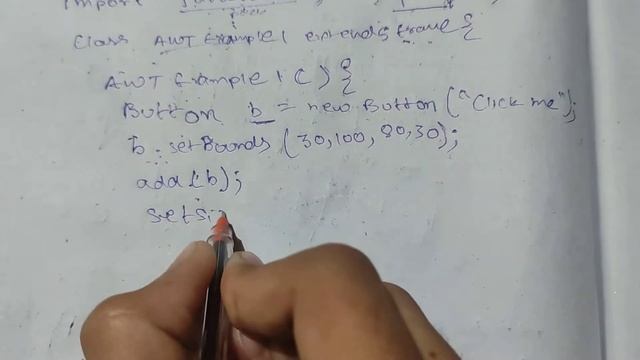 import
class AWTExample1 extends Frame {
AWTExample1 () {
Button b = new Button ("Click me");
b. setBounds (30,100,80,30);
add (b);
setsi